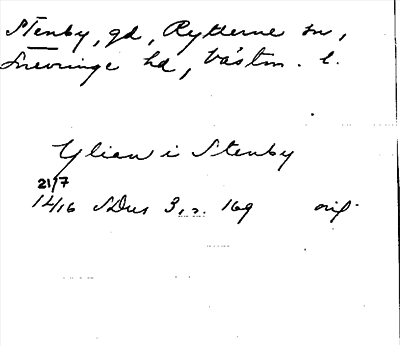 Stenby, gd, Rytterne sn,
Snevringe hd, Västm. l.
Ylian i Stenby
21/7
1416 SDns 3, s. 169 orig.